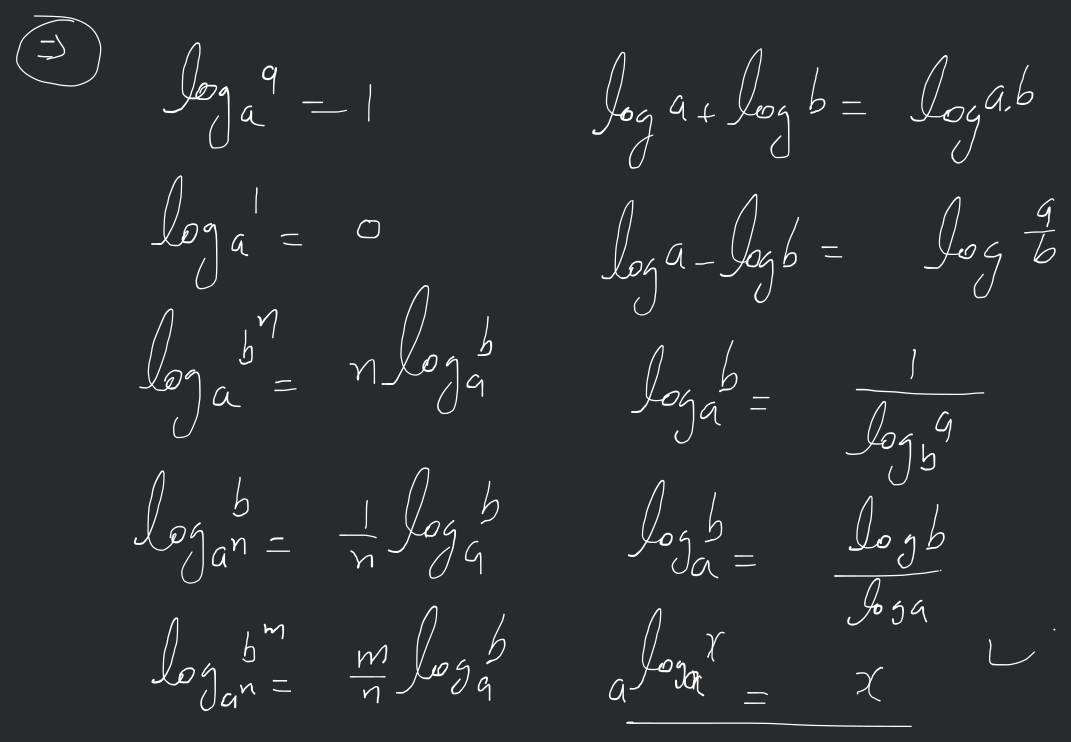 ⇒
log_a a = 1
log_a 1 = 0
log_a b^n = n log_a b
log_{a^n} b = 1/n log_a b
log_{a^n} b^m = m/n log_a b
log a + log b = log a.b
log a - log b = log a/b
log_a b = 1/log_b a
log_a b = log b/log a
a^{log_a x} = x